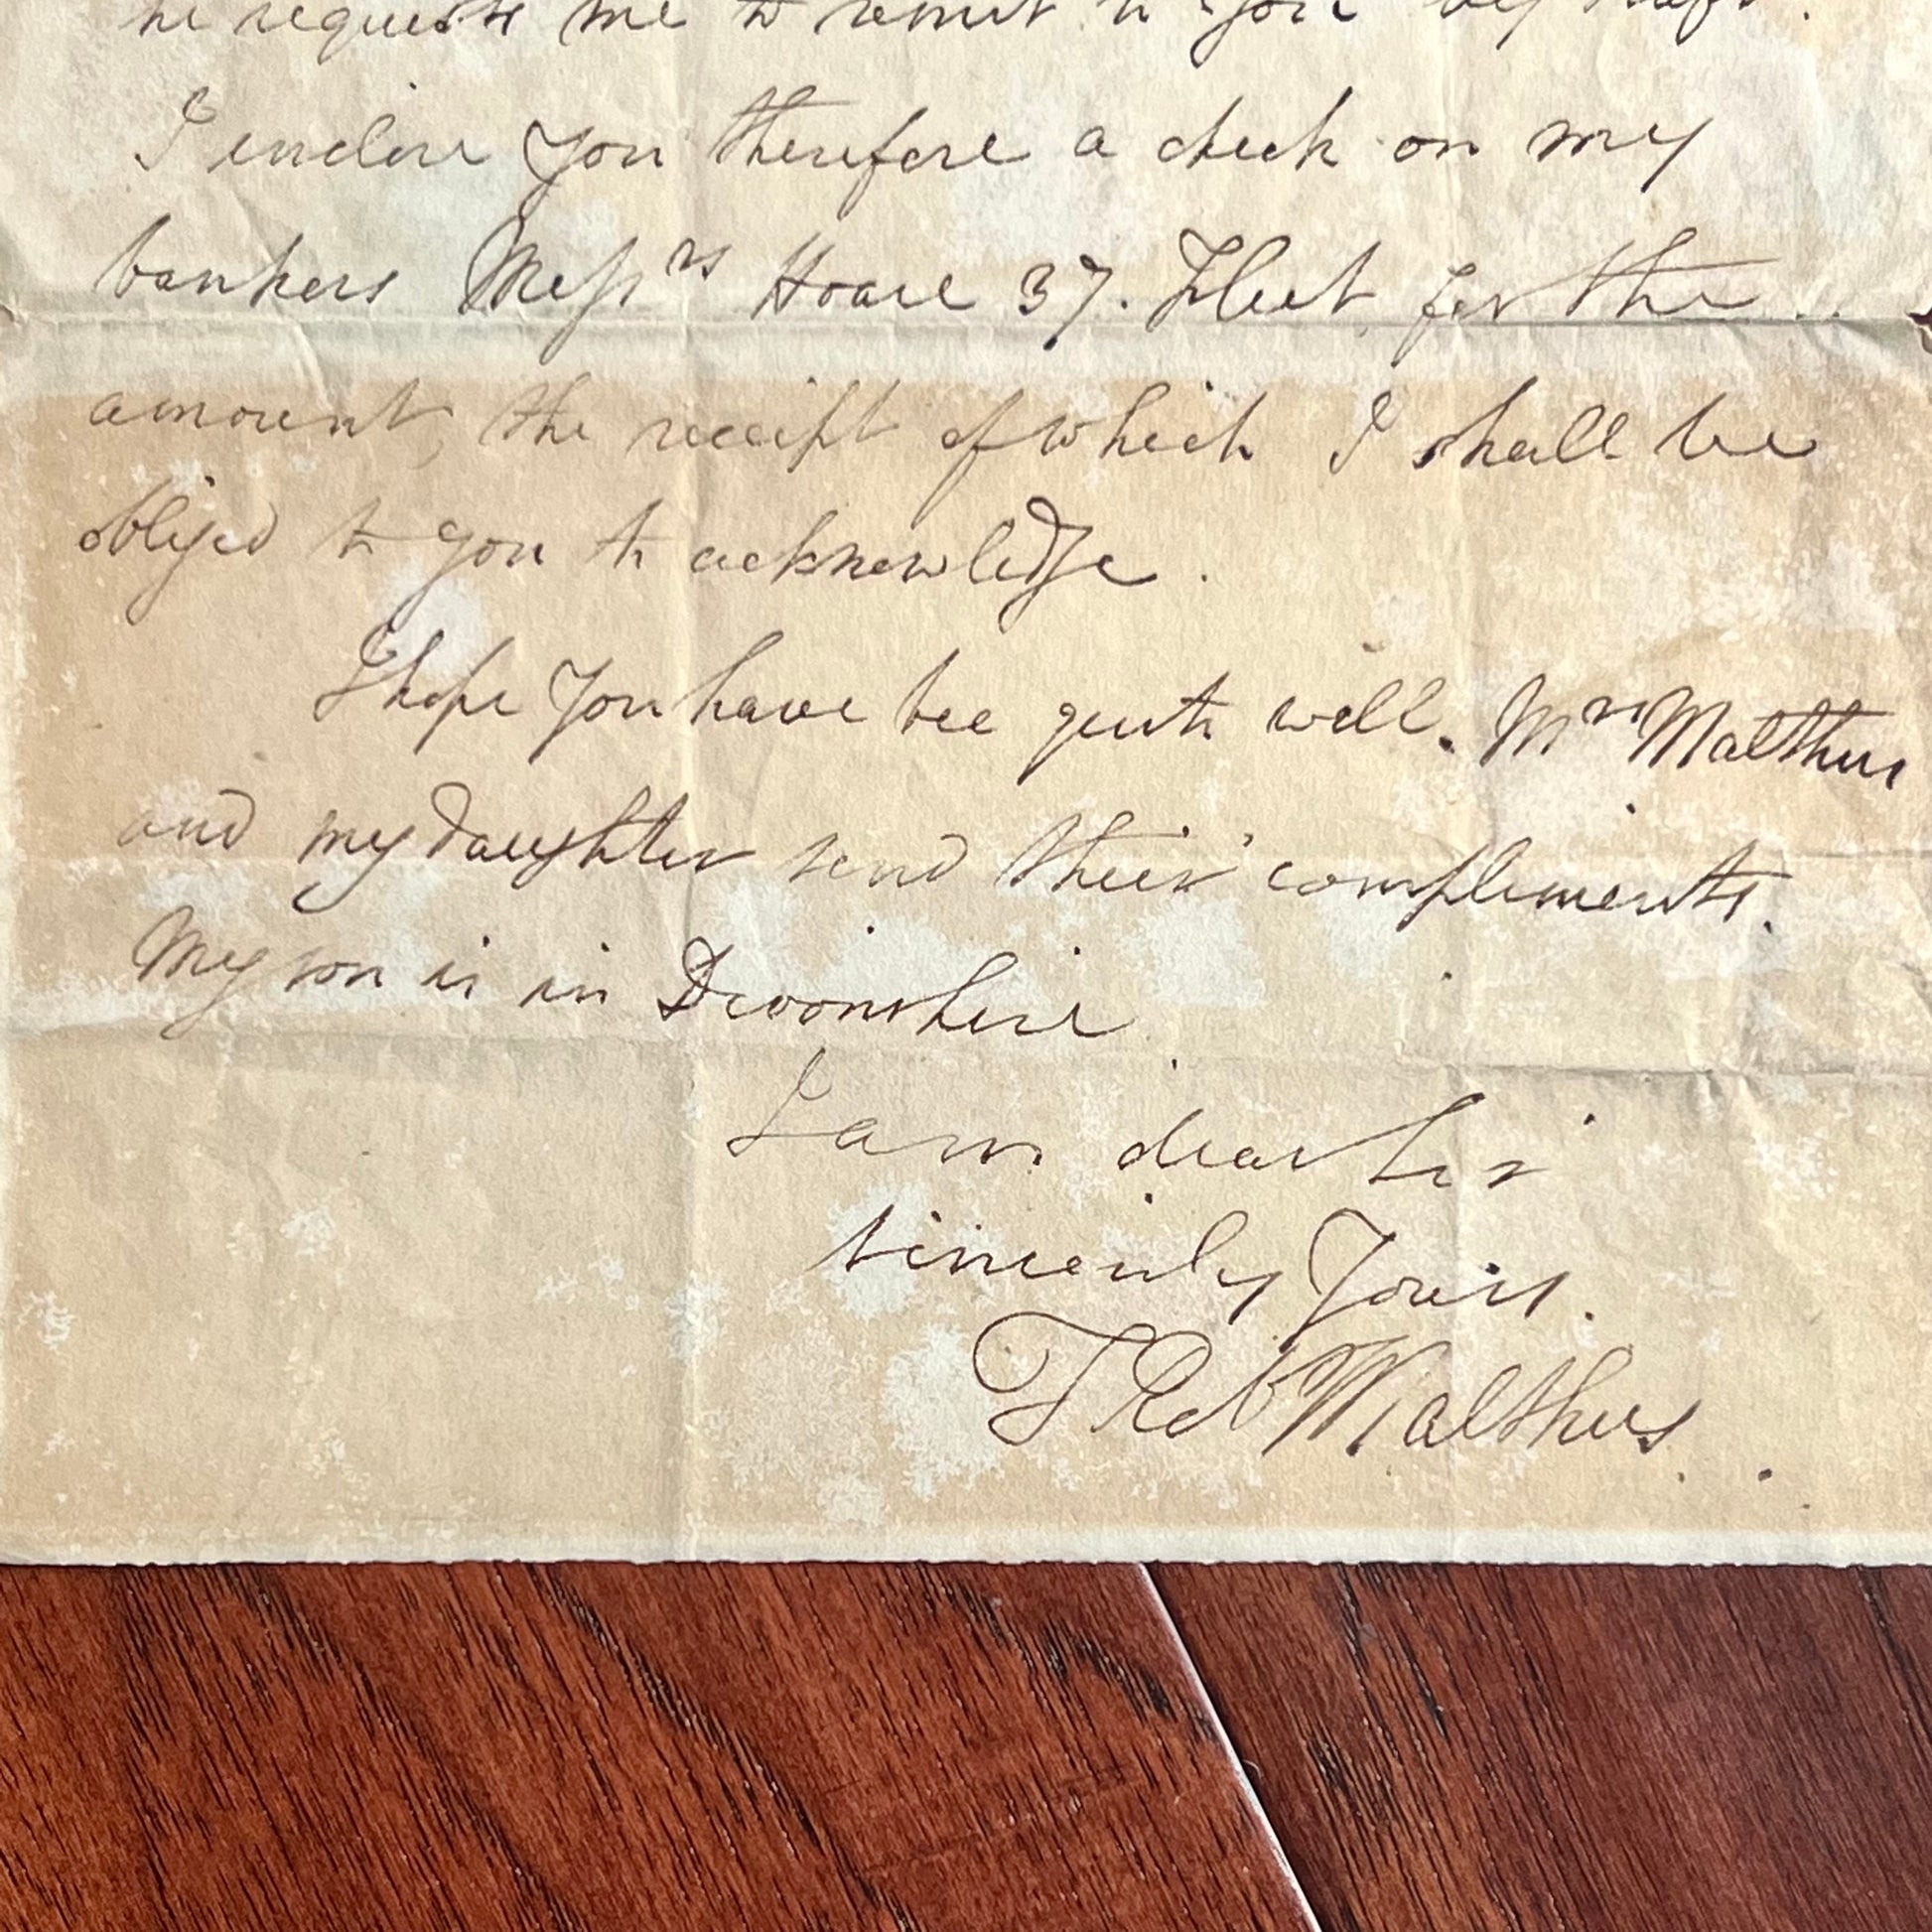 he requests me to remit to you
I enclose you therefore a check on my
bankers Messrs Hoare 37. Fleet for the ..
amount, the receipt of which I shall be
obliged to you to acknowledge.
I hope you have bee quite well. Mrs Malthus
and my daughter send their compliments.
My son is in Devonshire.
I am dear Sir
sincerely Yours.
T Robt Malthus.